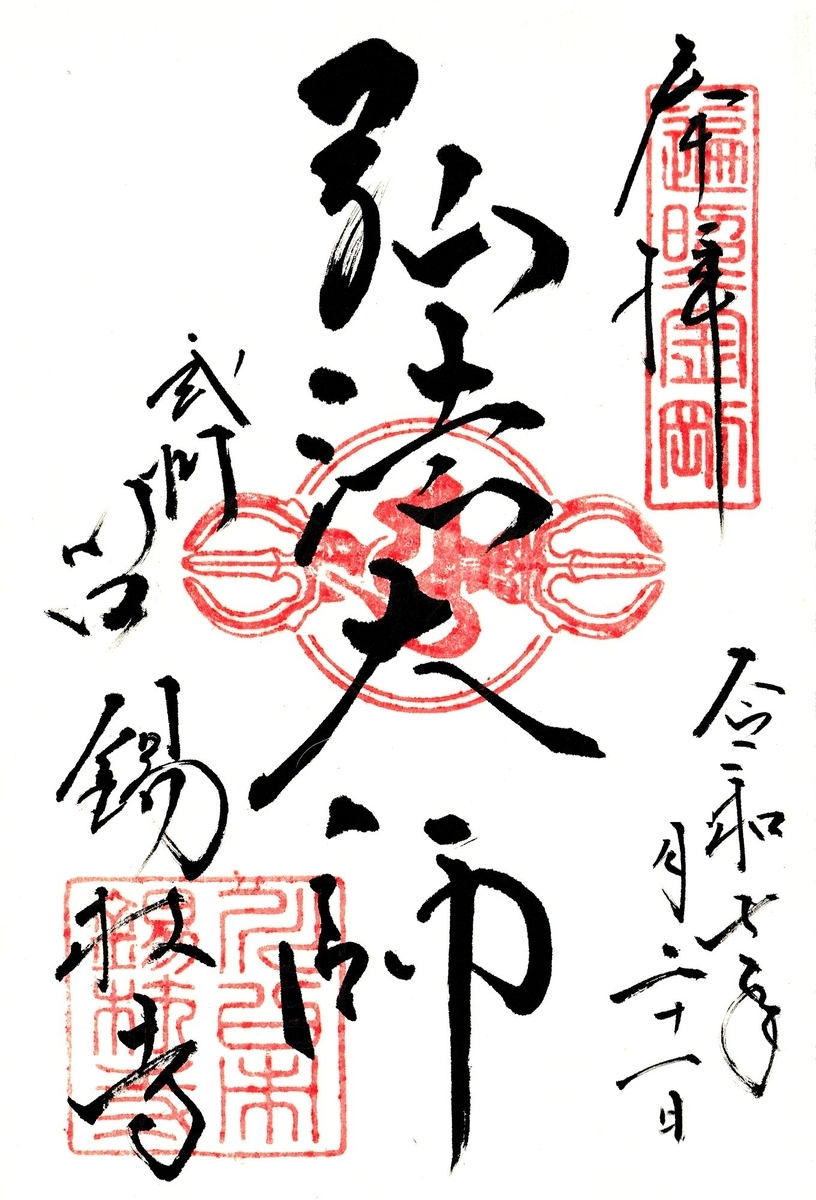 奉拝
遍照金剛
令和七年
月二十一日
弘法大師
武州川口
錫杖寺
川口市
錫杖寺